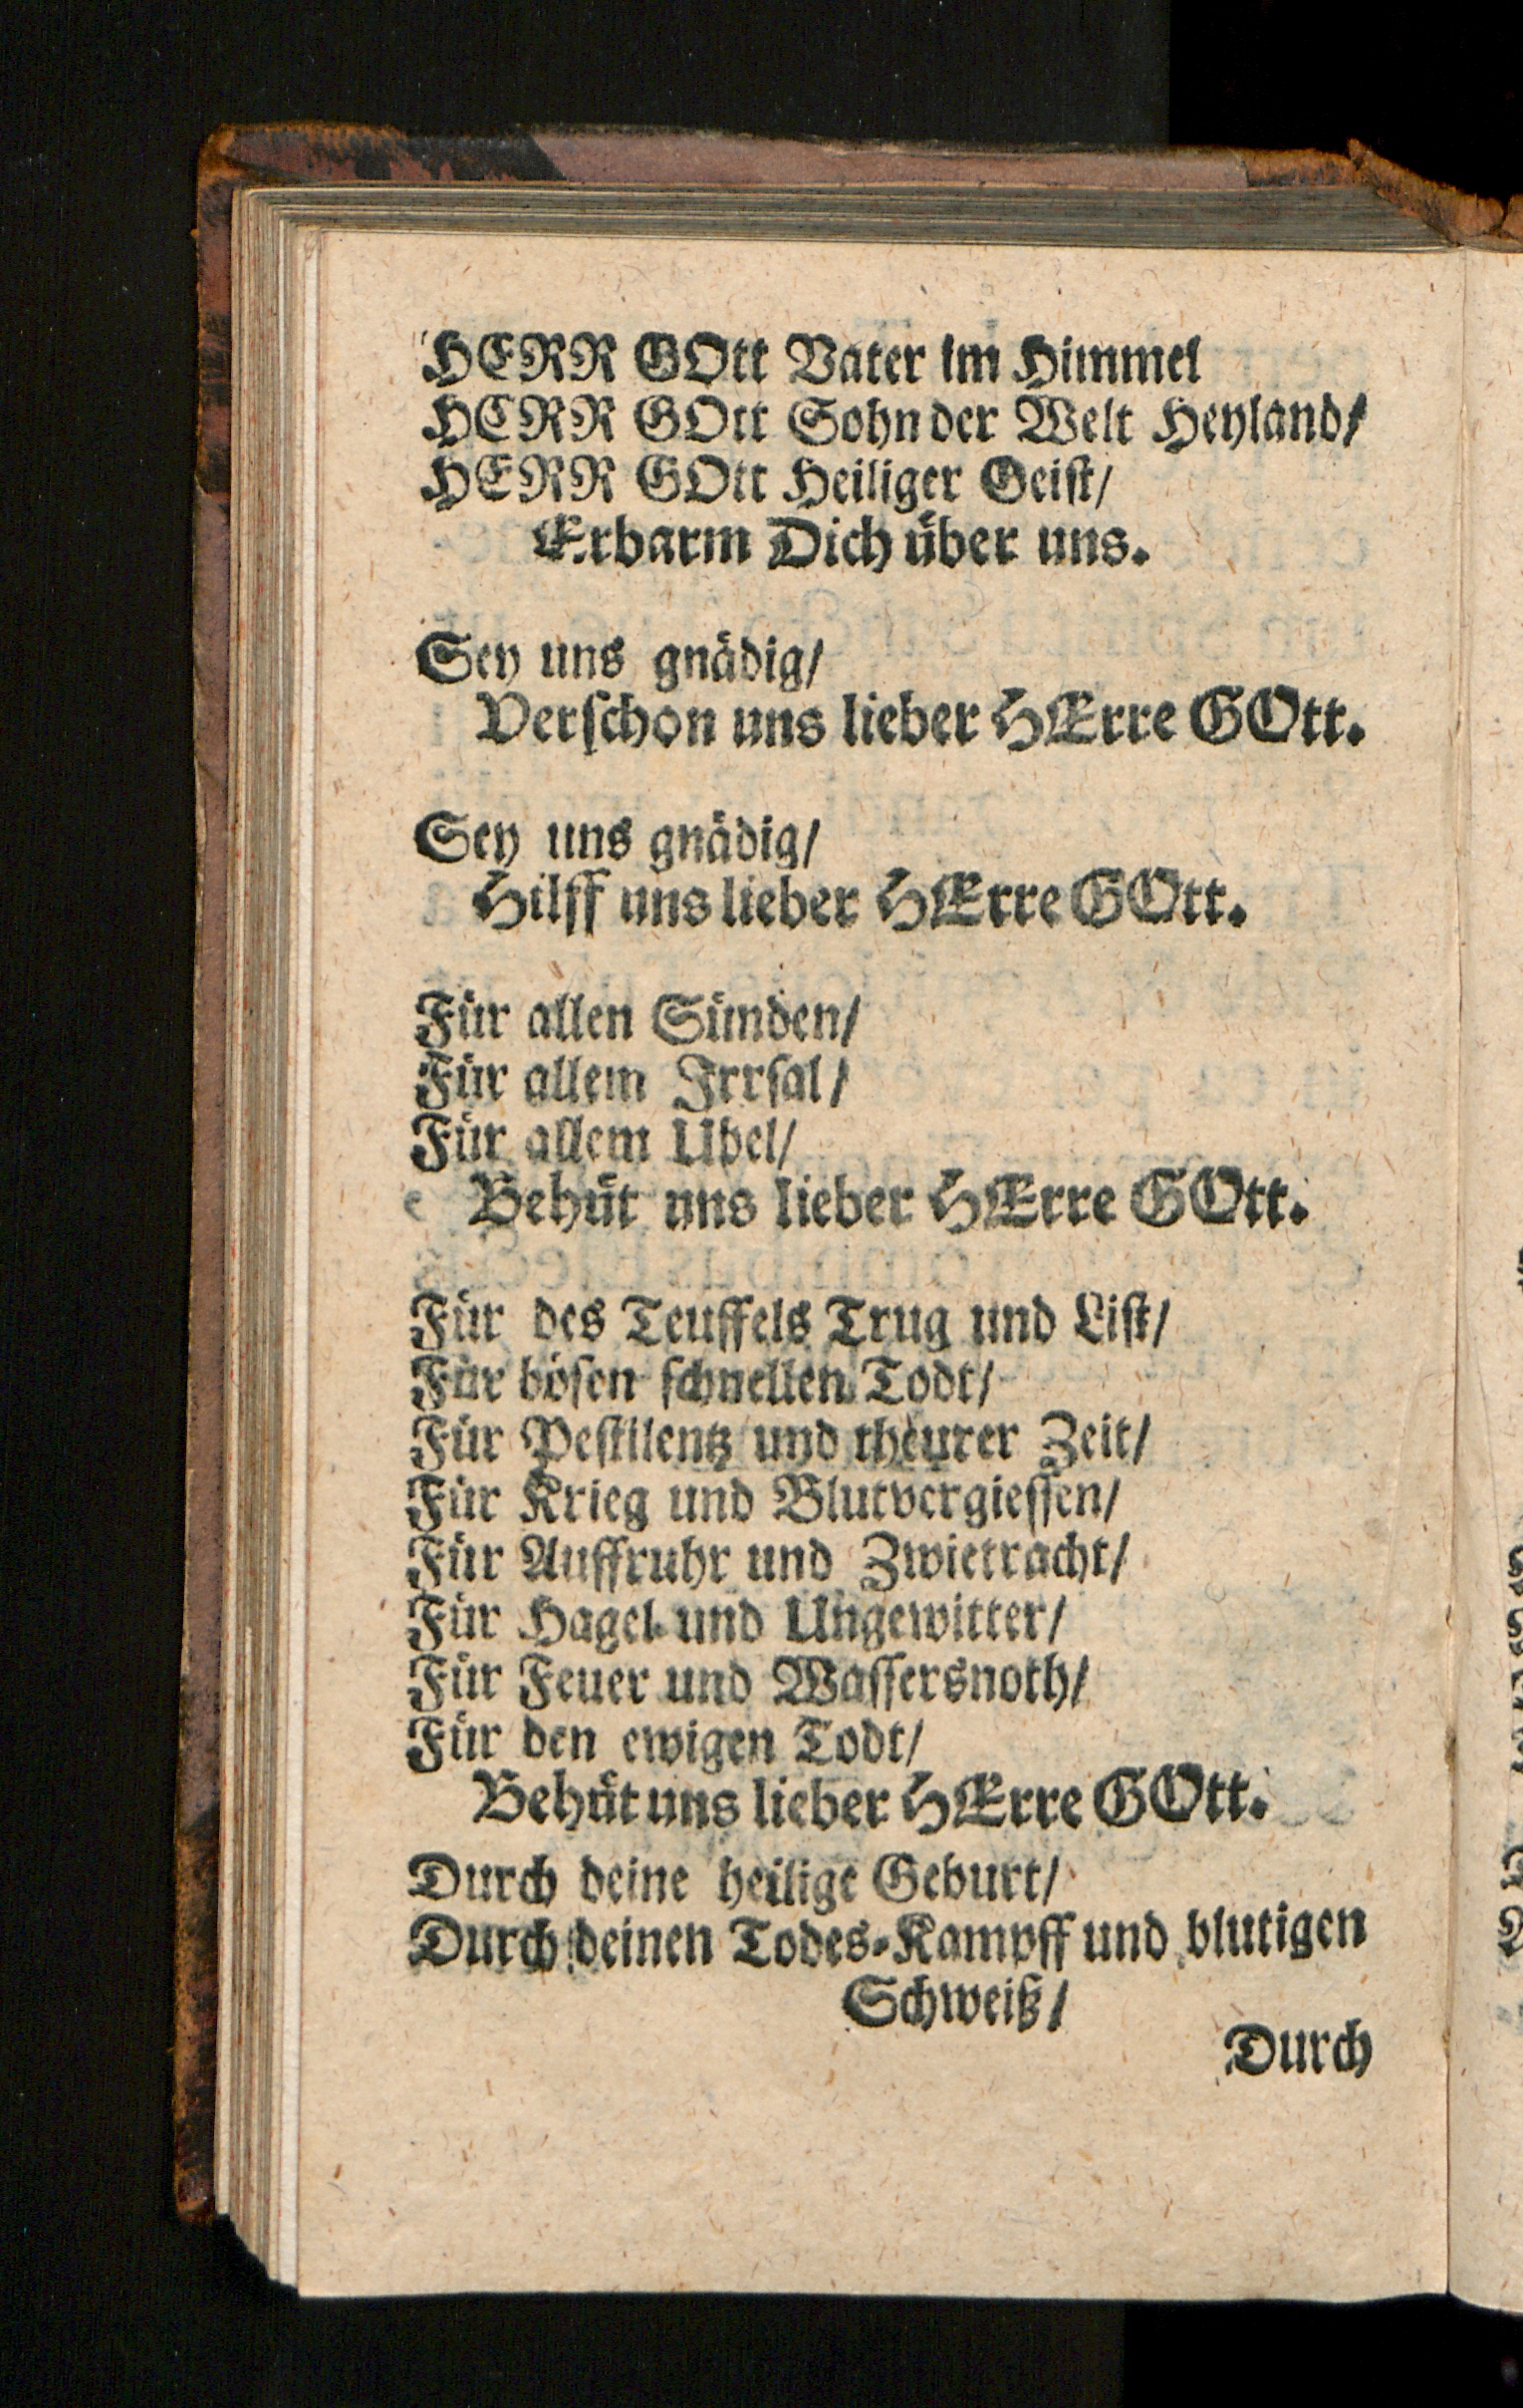 HERR GOtt Vater im Himmel
HERR GOtt Sohn der Welt Heyland/
HERR GOtt Heiliger Geiſt/
Erbarm Dich uͤber uns.
Sey uns gnaͤdig/
Verſchon uns lieber HErre GOtt.
Sey uns gnaͤdig/
Hilff uns lieber HErre GOtt.
Fuͤr allen Suͤnden/
Fuͤr allem Irrſal/
Fuͤr allem Ubel/
Behuͤt uns lieber HErre GOtt.
Fuͤr des Teuffels Trug und Liſt/
Fuͤr boͤſen ſchnellen Todt/
Fuͤr Peſtilentz und theurer Zeit/
Fuͤr Krieg und Blutvergieſſen/
Fuͤr Auffruhr und Zwietracht/
Fuͤr Hagel und Ungewitter/
Fuͤr Feuer und Waſſersnoth/
Fuͤr den ewigen Todt/
Behuͤt uns lieber HErre GOtt.
Durch deine heilige Geburt/
Durch deinen Todes-Kampff und blutigen
Schweiß/
Durch